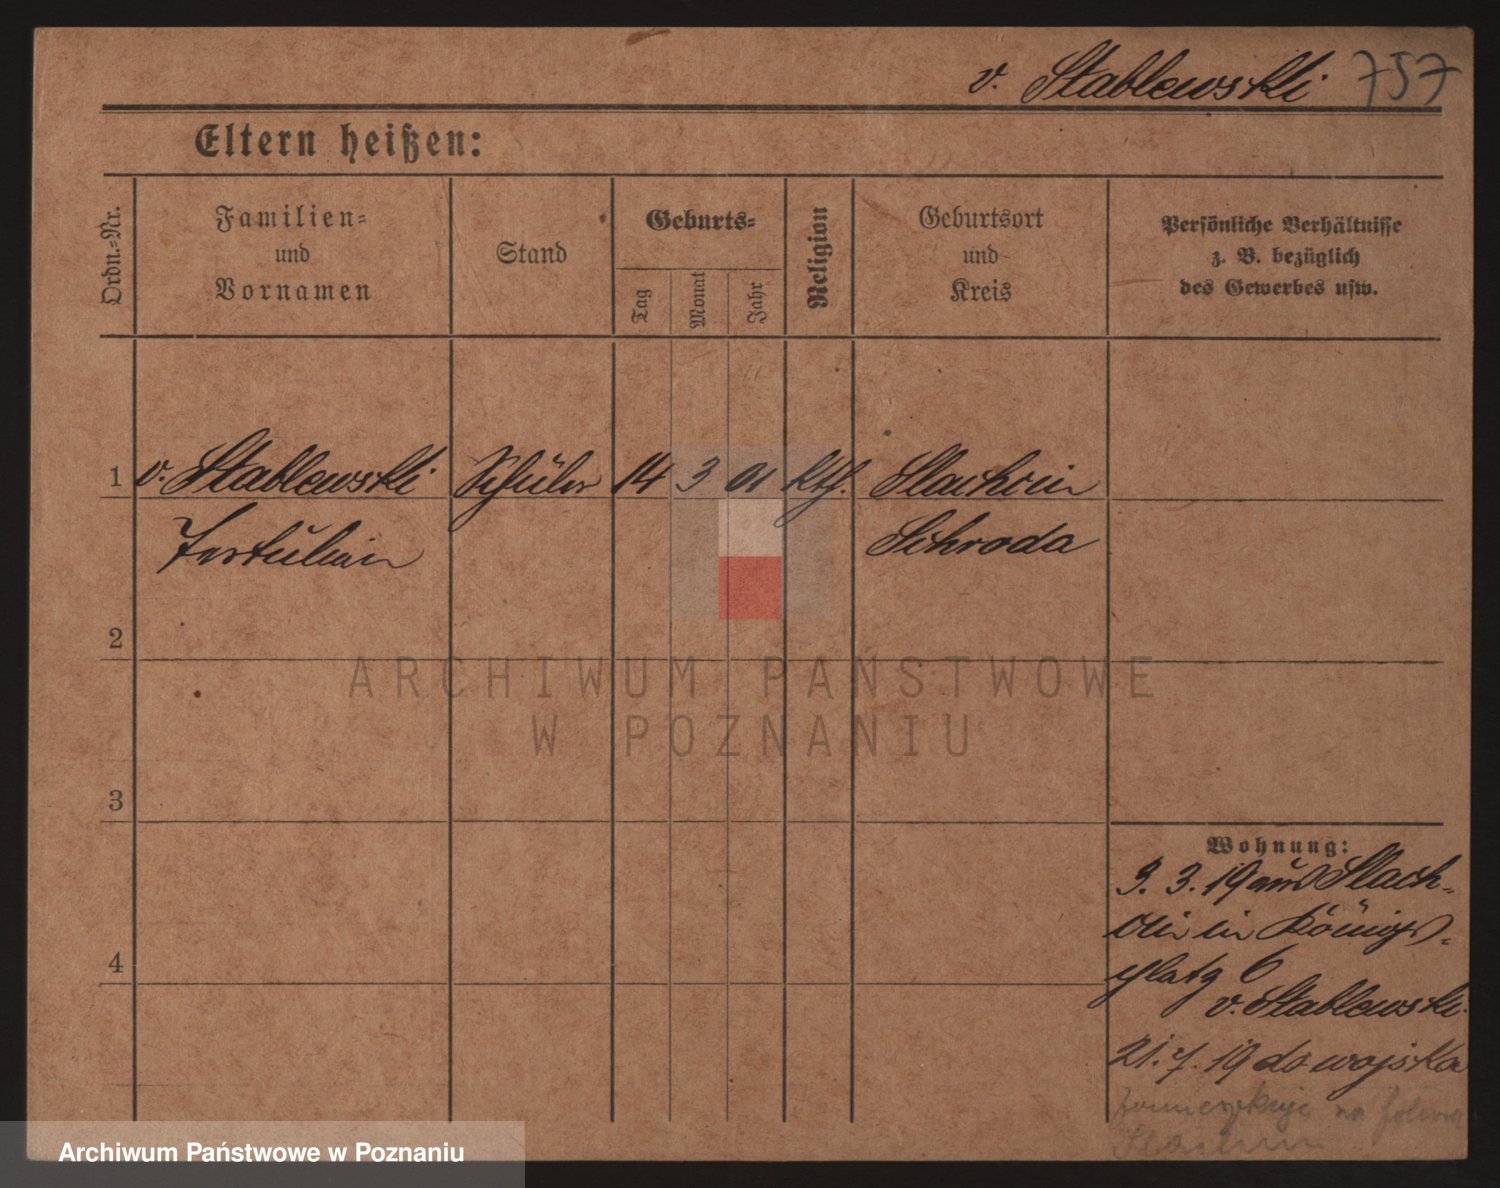 v. Stablewski 757
Eltern heißen:
Ordn.-Nr.
Familien-
und
Vornamen
Stand
Geburts-
Tag
Monat
Jahr
Religion
Geburtsort
und
Kreis
Persönliche Verhältnisse
z. B. bezüglich
des Gewerbes usw.
1 v. Stablewski Schüler 14 3 01 kth. Slachcin
Tertulian Schroda
2
3
4
Wohnung:
3. 3. 19 aus Slach-
cin in Königs-
platz 6
v. Stablewski
21. 7. 19 do wojska
na
ARCHIWUM PAŃSTWOWE
W POZNANIU
Archiwum Państwowe w Poznaniu